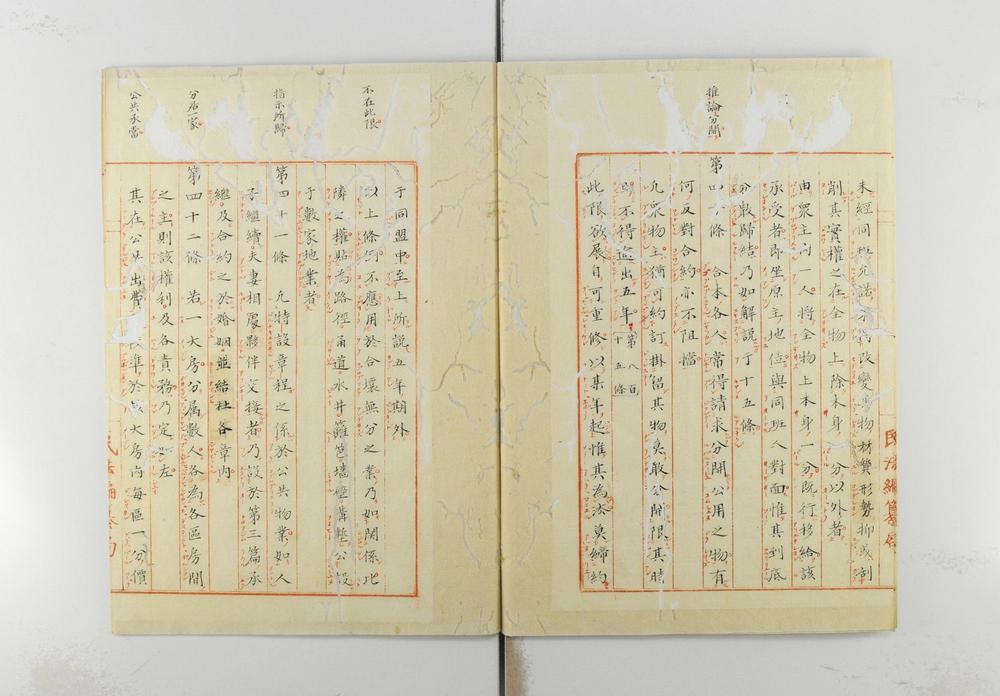 推論分開
未經同班允諾不得改變其物材質形勢抑或刮
削其實權之在全物上除本身一分以外者
由衆主內一人將全物上本身一分既行移給該
承受者即坐原主地位與同班人對面惟其到底
分數歸結乃如解說于十五條
第四十條 合本各人常得請求分開公用之物有
何反對合約亦不阻擋
九衆物主猶可約訂掛留其物莫敢分開限其時
即不得逾出五年 第八百十五條
此限欲展自可重修以某年起惟其為法莫締約
不在此限
指示所歸
分居一家
公共承當
于同盟中至上所說五年期外
以上條例不應用於合壞無分之業乃如関係比
隣之權貼為路徑甬道水井籬笆墻壁溝塹公設
于數家地業者
第四十一條 允特設章程之係於公共物業如人
子繼續夫妻相處夥伴交接者乃設於第三篇承
繼及合約之於婚姻並結社各章內
第四十二條 若一大房分属數人各為各區房間
之主則該權利及各責務乃定 左
其在公共出費 準於 大房內每區一分價